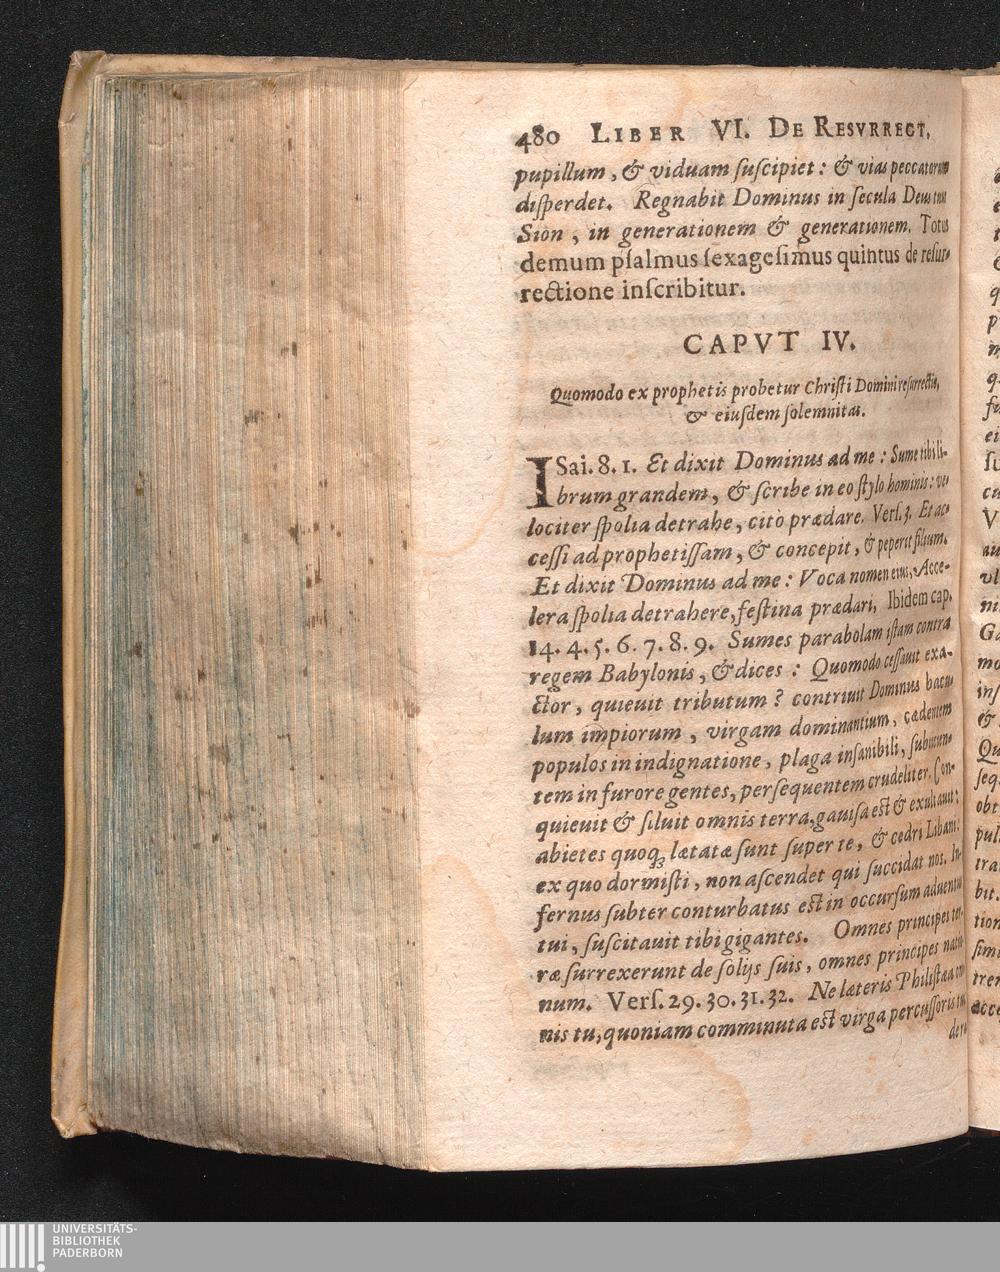 480 LIBER VI. DE RESVRRECT,
pupillum, & viduam ſuſcipiet: & vias peccatorum
diſperdet. Regnabit Dominus in ſecula Deus tuus
Sion, in generationem & generationem. Totus
demum pſalmus ſexageſimus quintus de reſur-
rectione inſcribitur.
CAPVT IV.
Quomodo ex prophetis probetur Chriſti Domini reſurrectio,
& eiuſdem ſolemnitas.
ISai. 8. 1. Et dixit Dominus ad me: Sume tibi li-
brum grandem, & ſcribe in eo ſtylo hominis: ve-
lociter ſpolia detrahe, citò prædare. Verſ. 3. Et ac-
ceſſi ad prophetiſſam, & concepit, & peperit filium.
Et dixit Dominus ad me: Voca nomen eius, Acce-
lera ſpolia detrahere, feſtina prædari, Ibidem cap.
14. 4. 5. 6. 7. 8. 9. Sumes parabolam iſtam contra
regem Babylonis, & dices: Quomodo ceſſauit exa-
ctor, quieuit tributum? contriuit Dominus bacu-
lum impiorum, virgam dominantium, cædentem
populos in indignatione, plaga inſanibili, ſubijcien-
tem in furore gentes, perſequentem crudeliter. Con-
quieuit & ſiluit omnis terra, gauiſa eſt & exultauit:
abietes quoq; lætatæ ſunt ſuper te, & cedri Libani:
ex quo dormiſti, non aſcendet qui ſuccidat nos. In-
fernus ſubter conturbatus eſt in occurſum aduentus
tui, ſuſcitauit tibi gigantes. Omnes principes ter-
ræ ſurrexerunt de ſolijs ſuis, omnes principes natio-
num. Verſ. 29. 30. 31. 32. Ne læteris Philiſtæa om-
nis tu, quoniam comminuta eſt virga percuſſoris tui,
de ra
UNIVERSITÄTS-
BIBLIOTHEK
PADERBORN